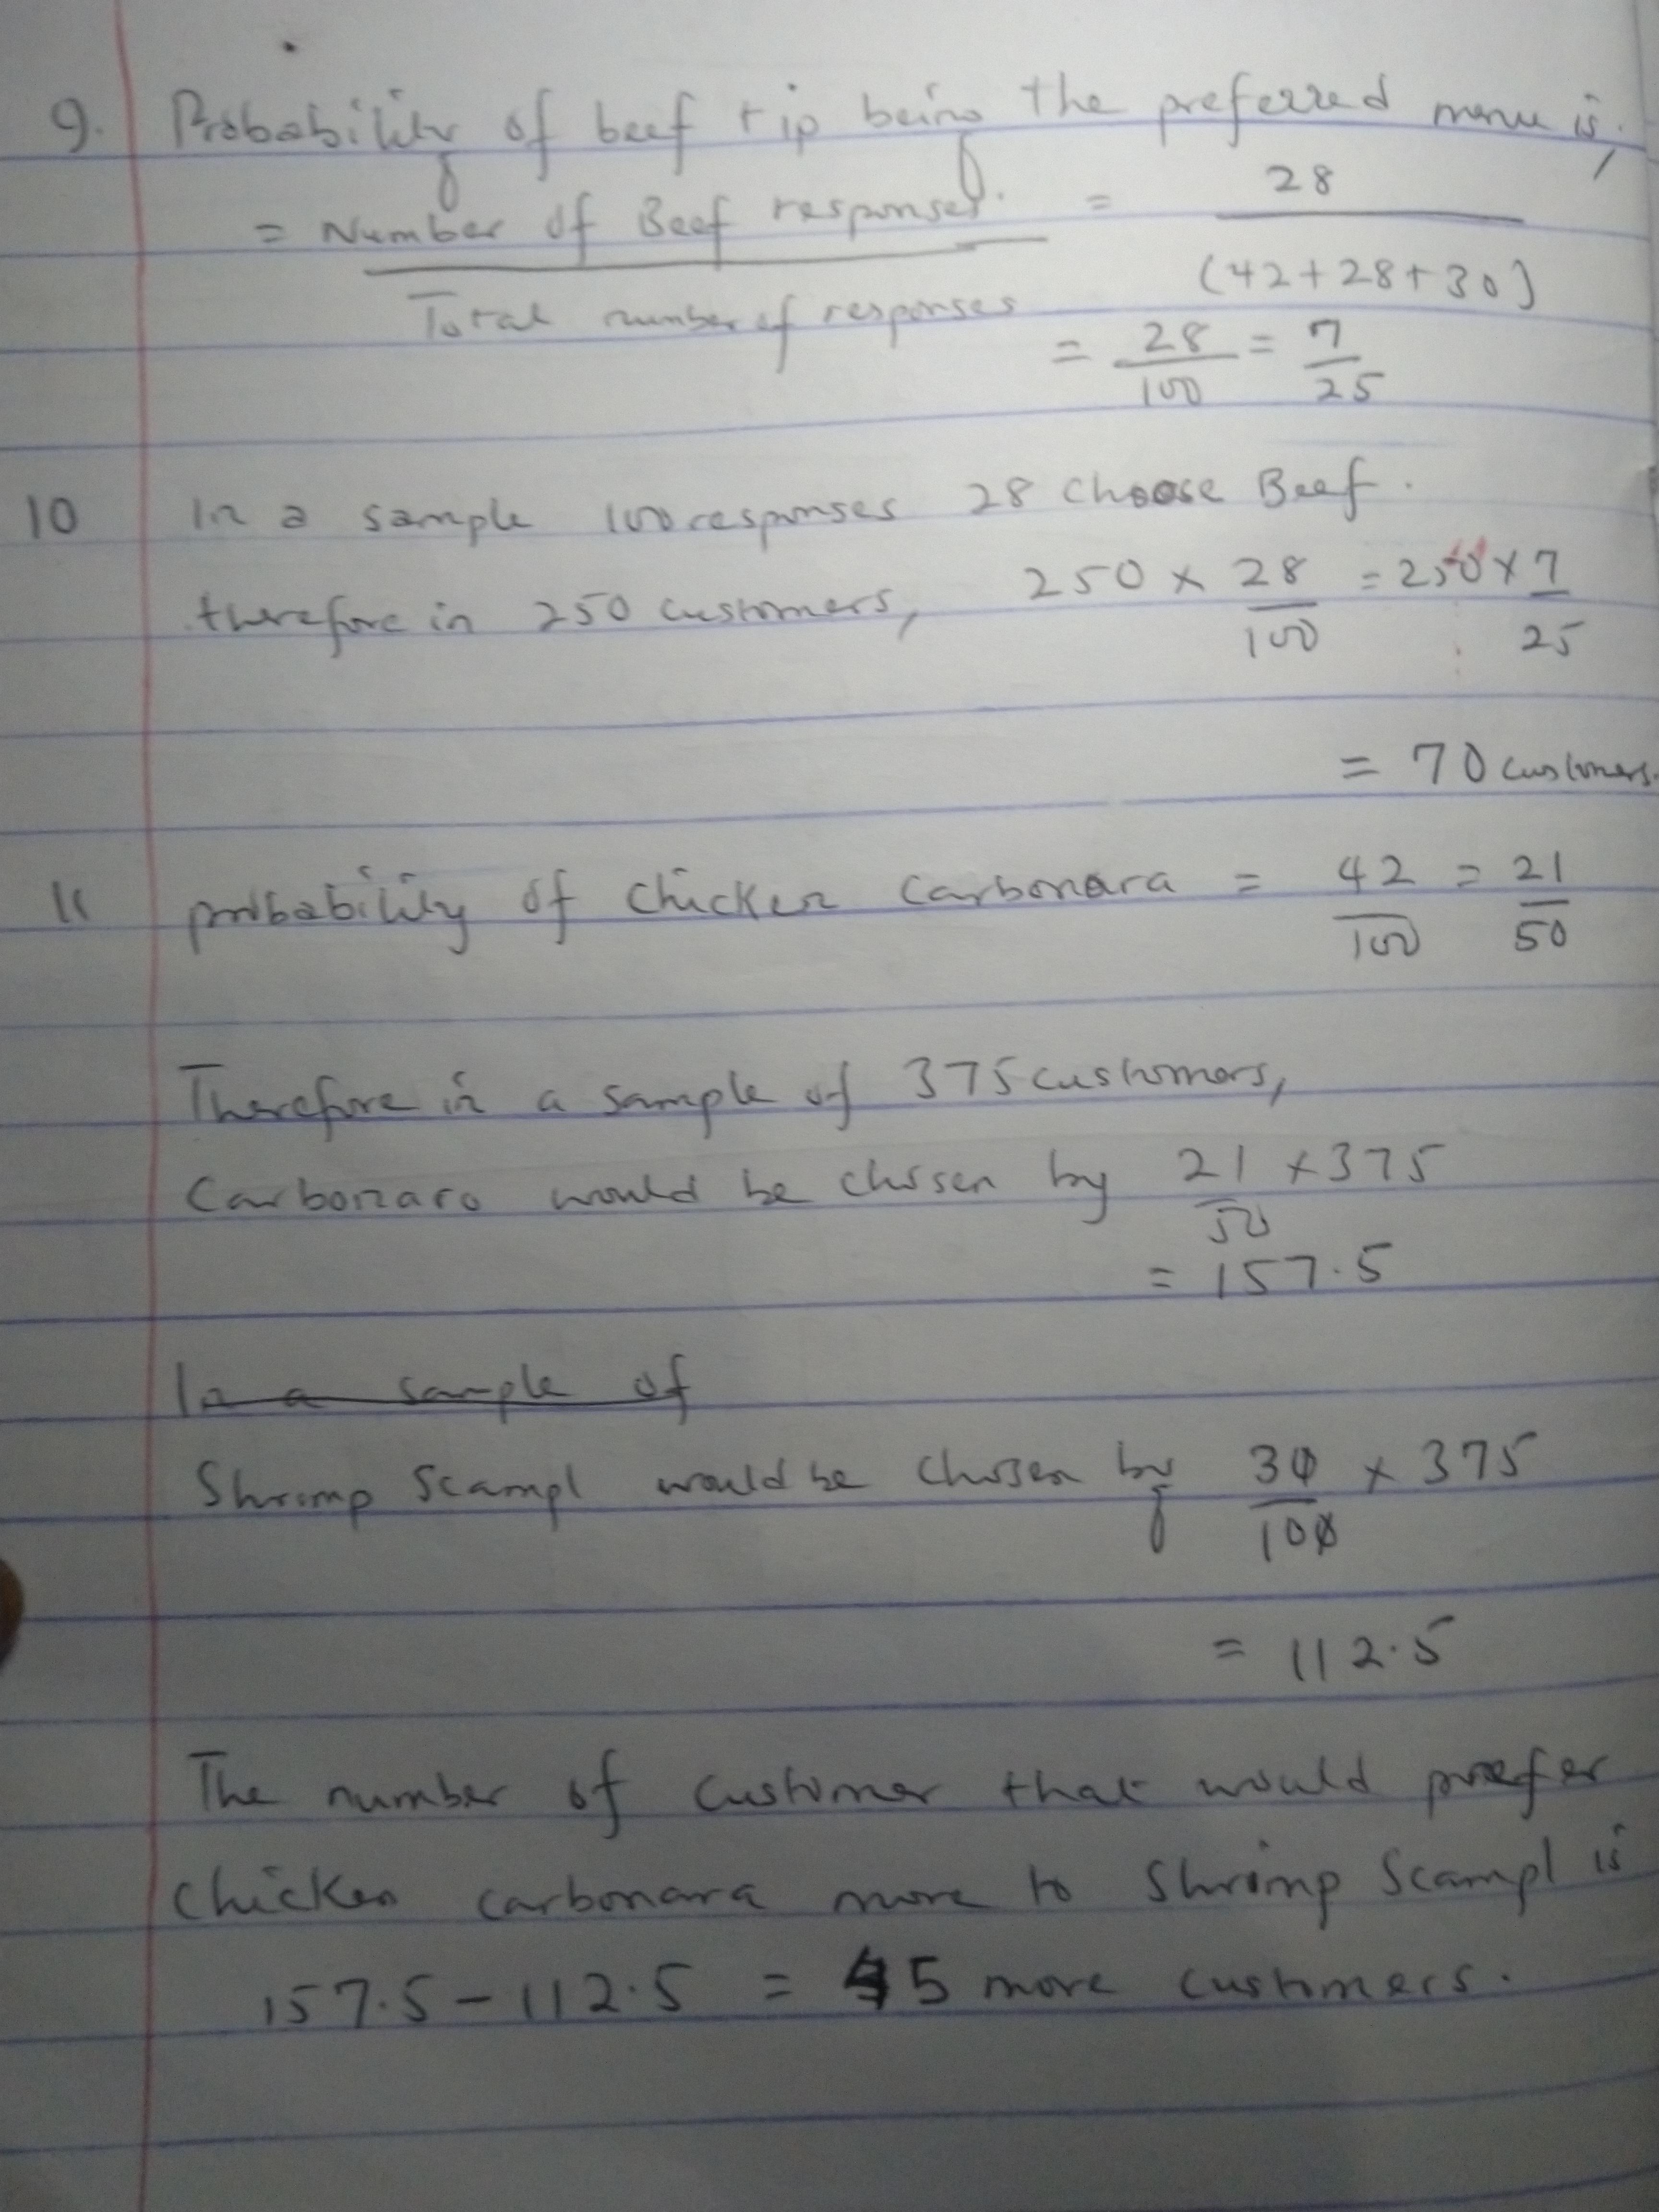 9. Probability of beef tip being the preferred menu is,
= Number of Beef responses. = 28
Total number of responses (42+28+30)
= 28 = 7
100 25
10 In a sample 100 responses 28 choose Beef.
therefore in 250 customers, 250 × 28 = 250 × 7
100 25
= 70 customers.
11 probability of Chicken Carbonara = 42 = 21
100 50
Therefore in a sample of 375 customers,
Carbonaro would be chosen by 21 × 375
50
= 157.5
In a sample of
Shrimp Scampl would be chosen by 30 × 375
100
= 112.5
The number of customer that would prefer
chicken carbonara more to Shrimp Scampl is
157.5 - 112.5 = 45 more customers.